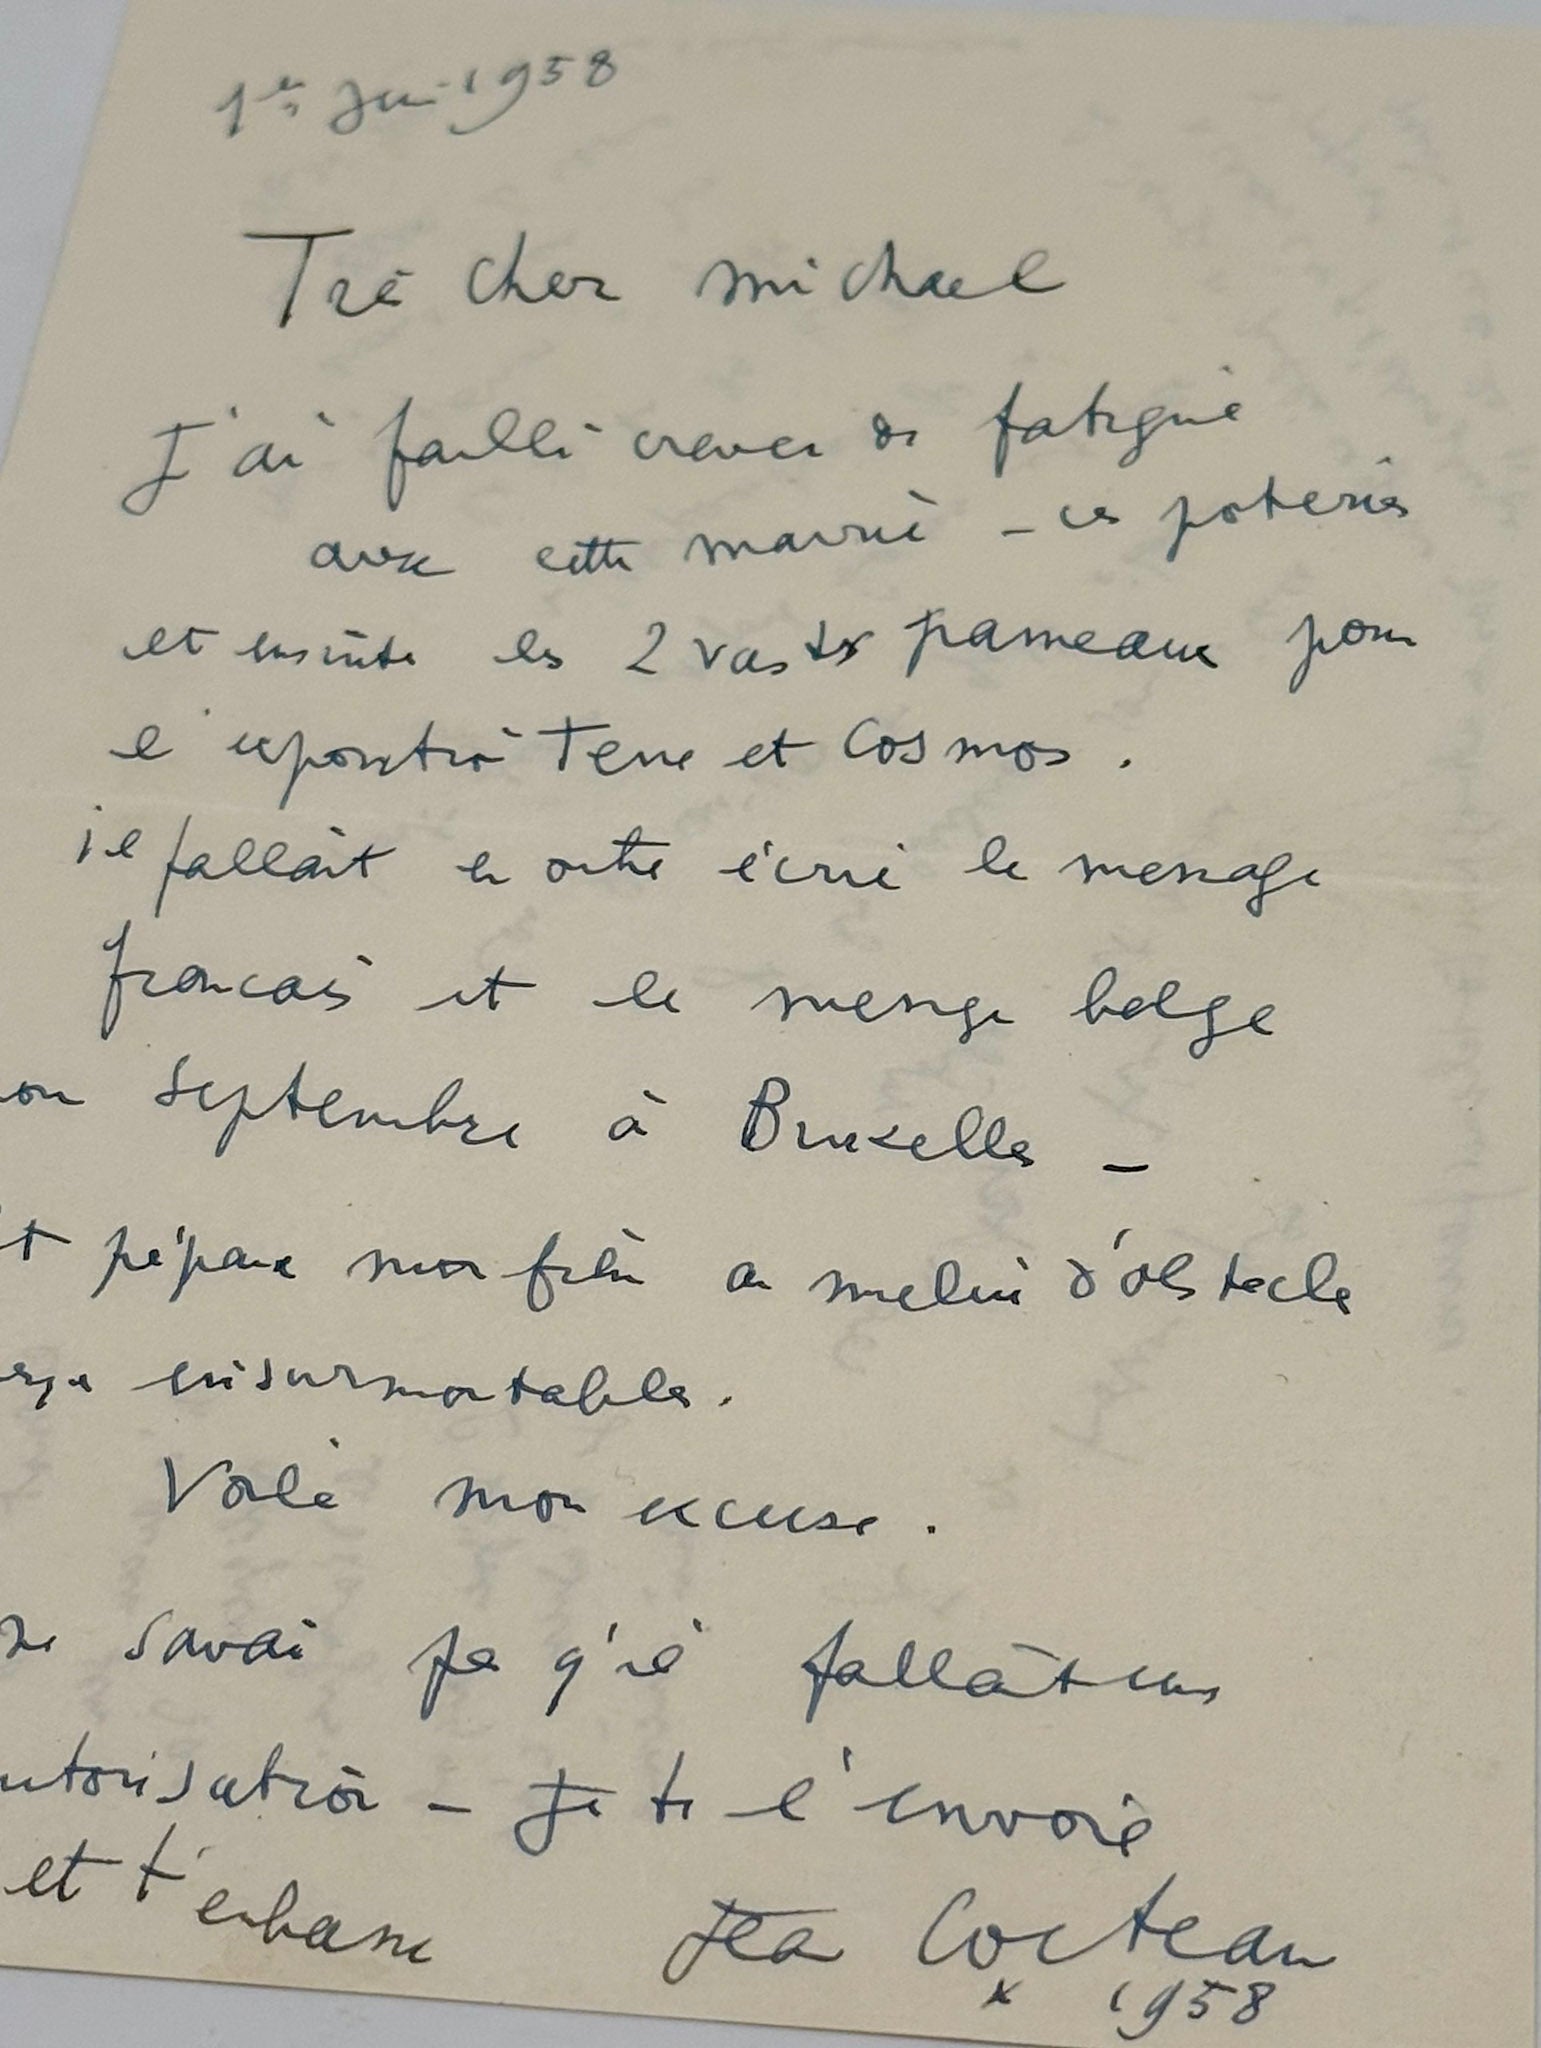 1er Juin 1958
Très cher Michael
J'ai failli crever de fatigue
avec cette mairie – ces poteries
et ensuite les 2 vastes panneaux pour
l'exposition Terre et Cosmos.
il fallait en outre écrire le message
français et le message belge
septembre à Bruxelles –
préparer mon film au milieu d'obstacles
insurmontables.
Voilà mon excuse.
ne savais pas qu'il fallait une
autorisation – Je te l'envoie
et t'embrasse Jean Cocteau
* 1958